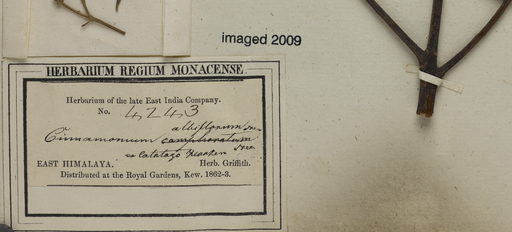 imaged 2009
HERBARIUM REGIUM MONACENSE
Herbarium of the late East India Company.
No. 4243
albiflorum Nees
Cinnamomum camphoratum
Nees
EAST HIMALAYA. Herb. Griffith.
Distributed at the Royal Gardens, Kew. 1862-3.